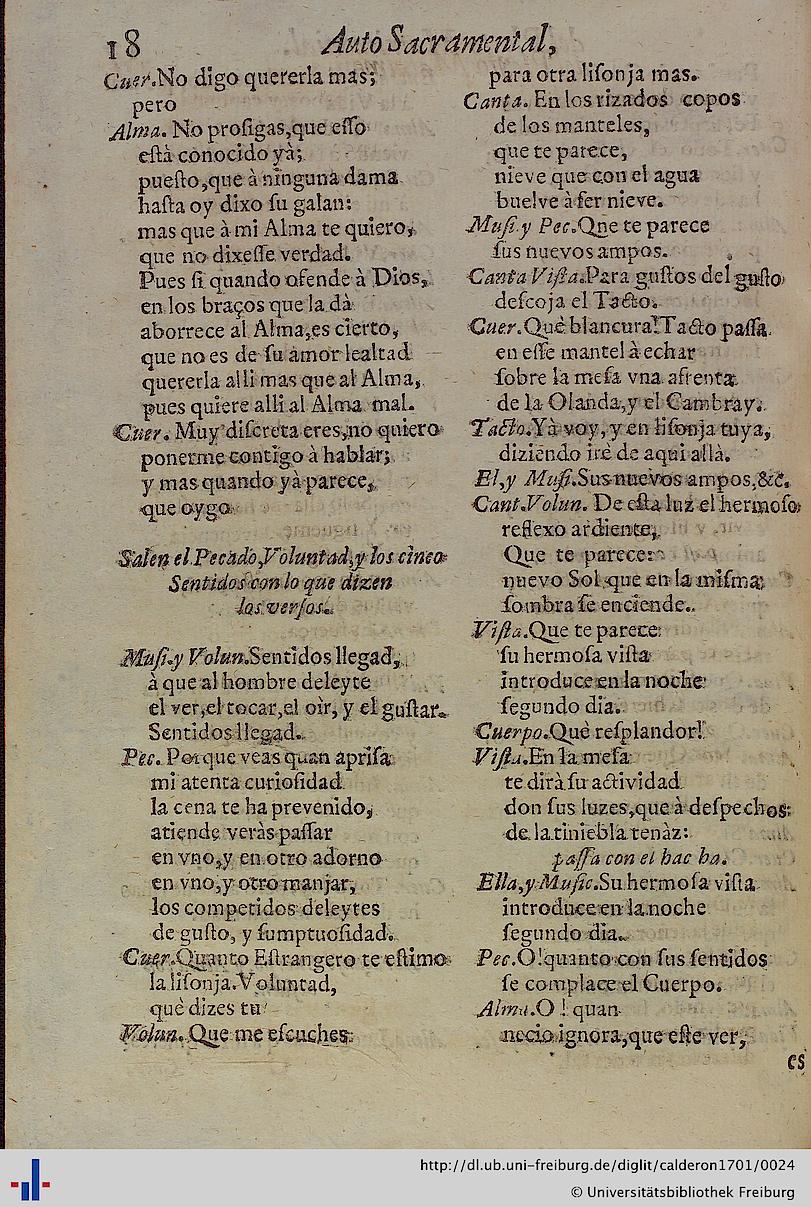 18
Auto Sacramental,
Cuer.No digo quererla mas;
pero
Alma. No prosigas,que eſſo
eſtà conocido yà;
pueſto,que à ninguna dama
haſta oy dixo ſu galan:
mas que à mi Alma te quiero,
que no dixeſſe verdad.
Pues ſi quando ofende à Dios,
en los braços que la dà
aborrece al Alma,es cierto,
que no es de ſu amor lealtad
quererla alli mas que al Alma,
pues quiere alli al Alma mal.
Cuer. Muy diſcreta eres,no quiero
ponerme contigo à hablar;
y mas quando yà parece,
que oygo
Salen el Pecado,Voluntad,y los cinco
Sentidos con lo que dizen
los verſos.
Muſi.y Volun.Sentidos llegad,
à que al hombre deleyte
el ver,el tocar,el oìr, y el guſtar.
Sentidos llegad.
Pec. Porque veas quan apriſa
mi atenta curioſidad
la cena te ha prevenido,
atiende veràs paſſar
en vno,y en otro adorno
en vno,y otro manjar,
los competidos deleytes
de guſto, y ſumptuoſidad.
Cuer.Quanto Eſtrangero te eſtimo
la liſonja.Voluntad,
què dizes tu
Volun. Que me eſcuches
para otra liſonja mas.
Canta. En los rizados copos
de los manteles,
que te parece,
nieve que con el agua
buelve à ſer nieve.
Muſi.y Pec.Que te parece
ſus nuevos ampos.
Canta Viſta.Para guſtos del guſto
deſcoja el Tacto.
Cuer.Què blancura!Tacto paſſa
en eſſe mantel à echar
ſobre la meſa vna afrenta
de la Olanda,y el Cambray.
Tacto.Yà voy, y en liſonja tuya,
diziendo irè de aqui allà.
El,y Muſi.Sus nuevos ampos,&c.
Cant.Volun. De eſta luz el hermoſo
reflexo ardiente,
Que te parece
nuevo Sol,que en la miſma
ſombra ſe enciende.
Viſta.Que te parece
ſu hermoſa viſta
introduce en la noche
ſegundo dia.
Cuerpo.Què reſplandor!
Viſta.En la meſa
te dirà ſu actividad
don ſus luzes,que à deſpechos
de la tiniebla tenàz:
paſſa con el hac ha.
Ella,y Muſic.Su hermoſa viſta
introduce en la noche
ſegundo dia.
Pec.O!quanto con ſus ſentidos
ſe complace el Cuerpo.
Alma.O ! quan
necio ignora,que eſte ver,
es
http://dl.ub.uni-freiburg.de/diglit/calderon1701/0024
© Universitätsbibliothek Freiburg